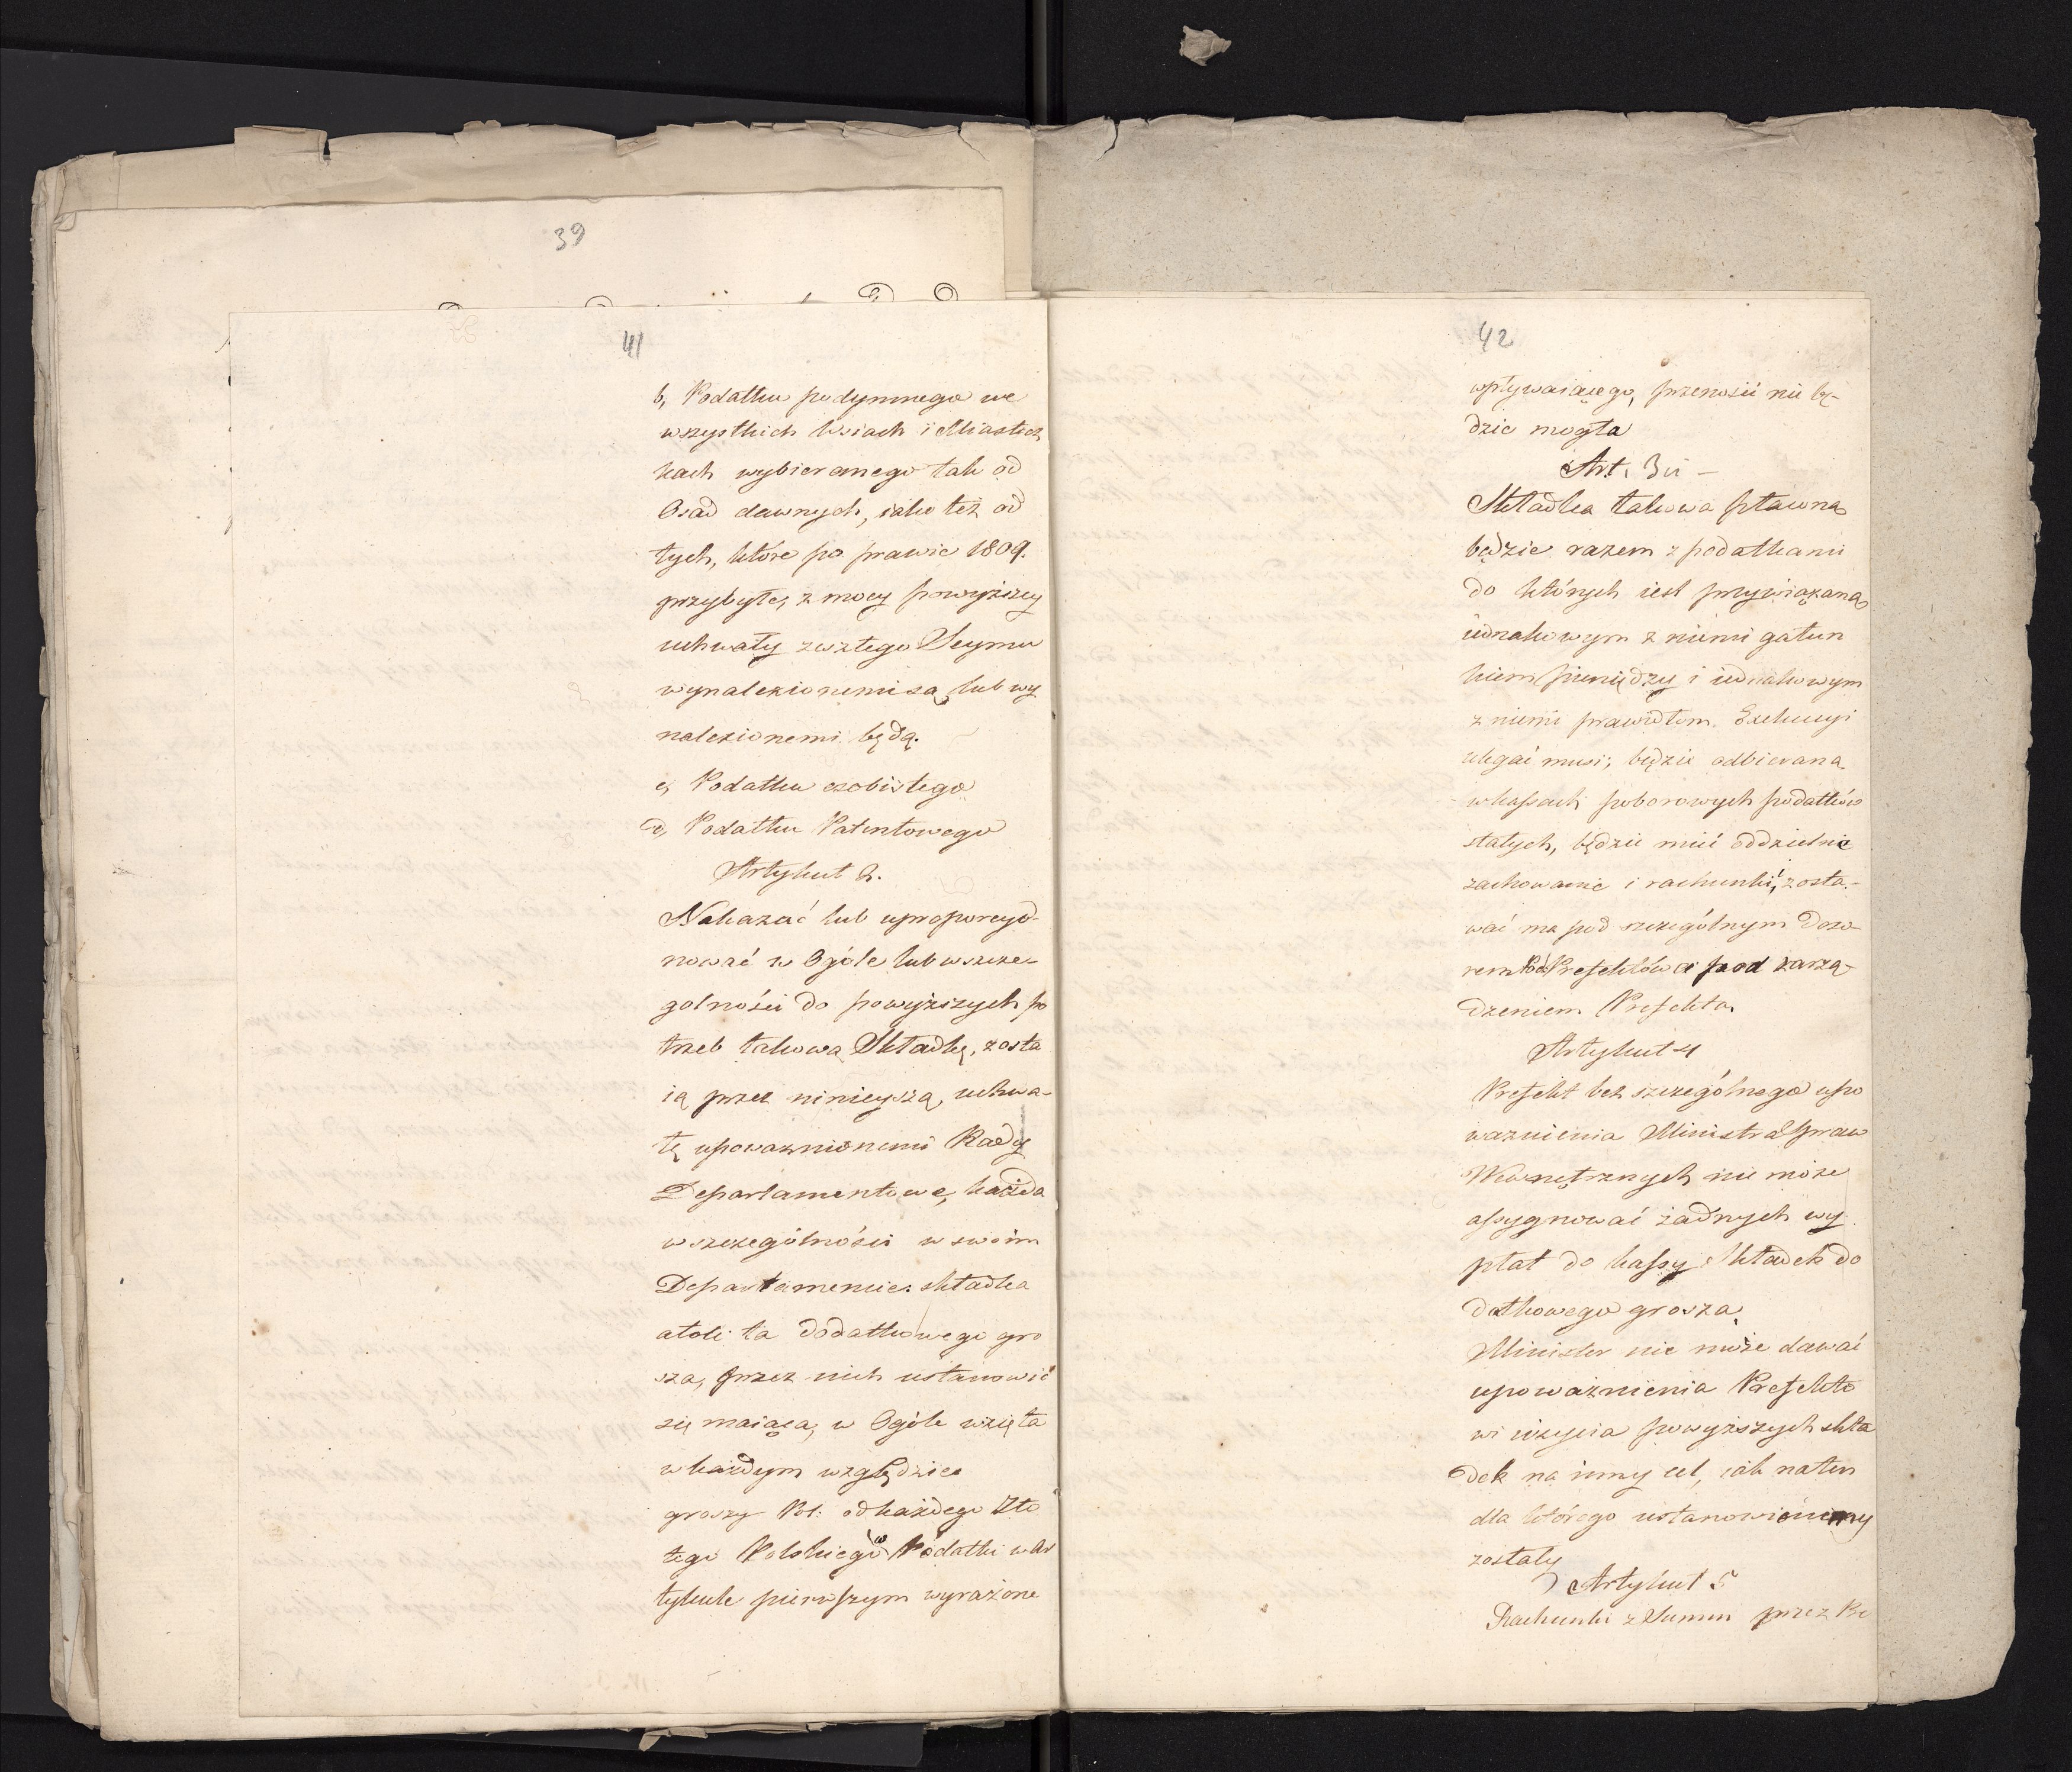 39
41
b, Podatku podymnego we
wszystkich Wsiach i Miastecz
kach wybieranego tak od
Osad dawnych, iako też od
tych, które po prawie 1809.
przybyłe, z mocy powyższey
uchwały zeszłego Seymu
wynalezionemi są, lub wy
nalezionemi będą.
c, Podatku osobistego
d, Podatku Patentowego
Artykuł 2.
Nakazać lub uproporcyo-
nować w Ogóle lub w szcze-
golności do powyższych po
trzeb takową Składkę, zosta
ią przez ninieyszą uchwa-
łę upoważnionemi Rady
Departamentowe, każda
w szczególności w swoim
Departamencie: składka
atoli ta dodatkowego gro
sza, przez nich ustanowić
się maiąca, w Ogóle wzięta
w każdym względzie
groszy Pol: od każdego Zło
tego Polskiego w Podatki w Ar
tykule pierwszym wyrażone
42
wpływaiącego, przenosić nie bę-
dzie mogła
Art. 3ci -
Składka takowa płacona
będzie razem z podatkami
do których iest przywiązana,
iednakowym z niemi gatun
kiem pieniędzy i iednakowym
z niemi prawidłom Exekucyi
ulegać musi; będzie odbierana
w kassach poborowych podatków
stałych, będzie mieć oddzielne
zachowanie i rachunki, zosta-
wać ma pod szczególnym Dozo-
rem Pod Prefektów a pod zarzą-
dzeniem Prefekta
Artykuł 4
Prefekt bez szczególnego upo
ważnienia Ministra Spraw
Wewnętrznych nie może
assygnować żadnych wy
płat do kassy Składek do
datkowego grosza,
Minister nie może dawać
upoważnienia Prefekto
wi użycia powyższych skła
dek na inny cel, iak na ten
dla którego ustanowionemy
zostały
Artykuł 5
Rachunki z Summ przez Pre